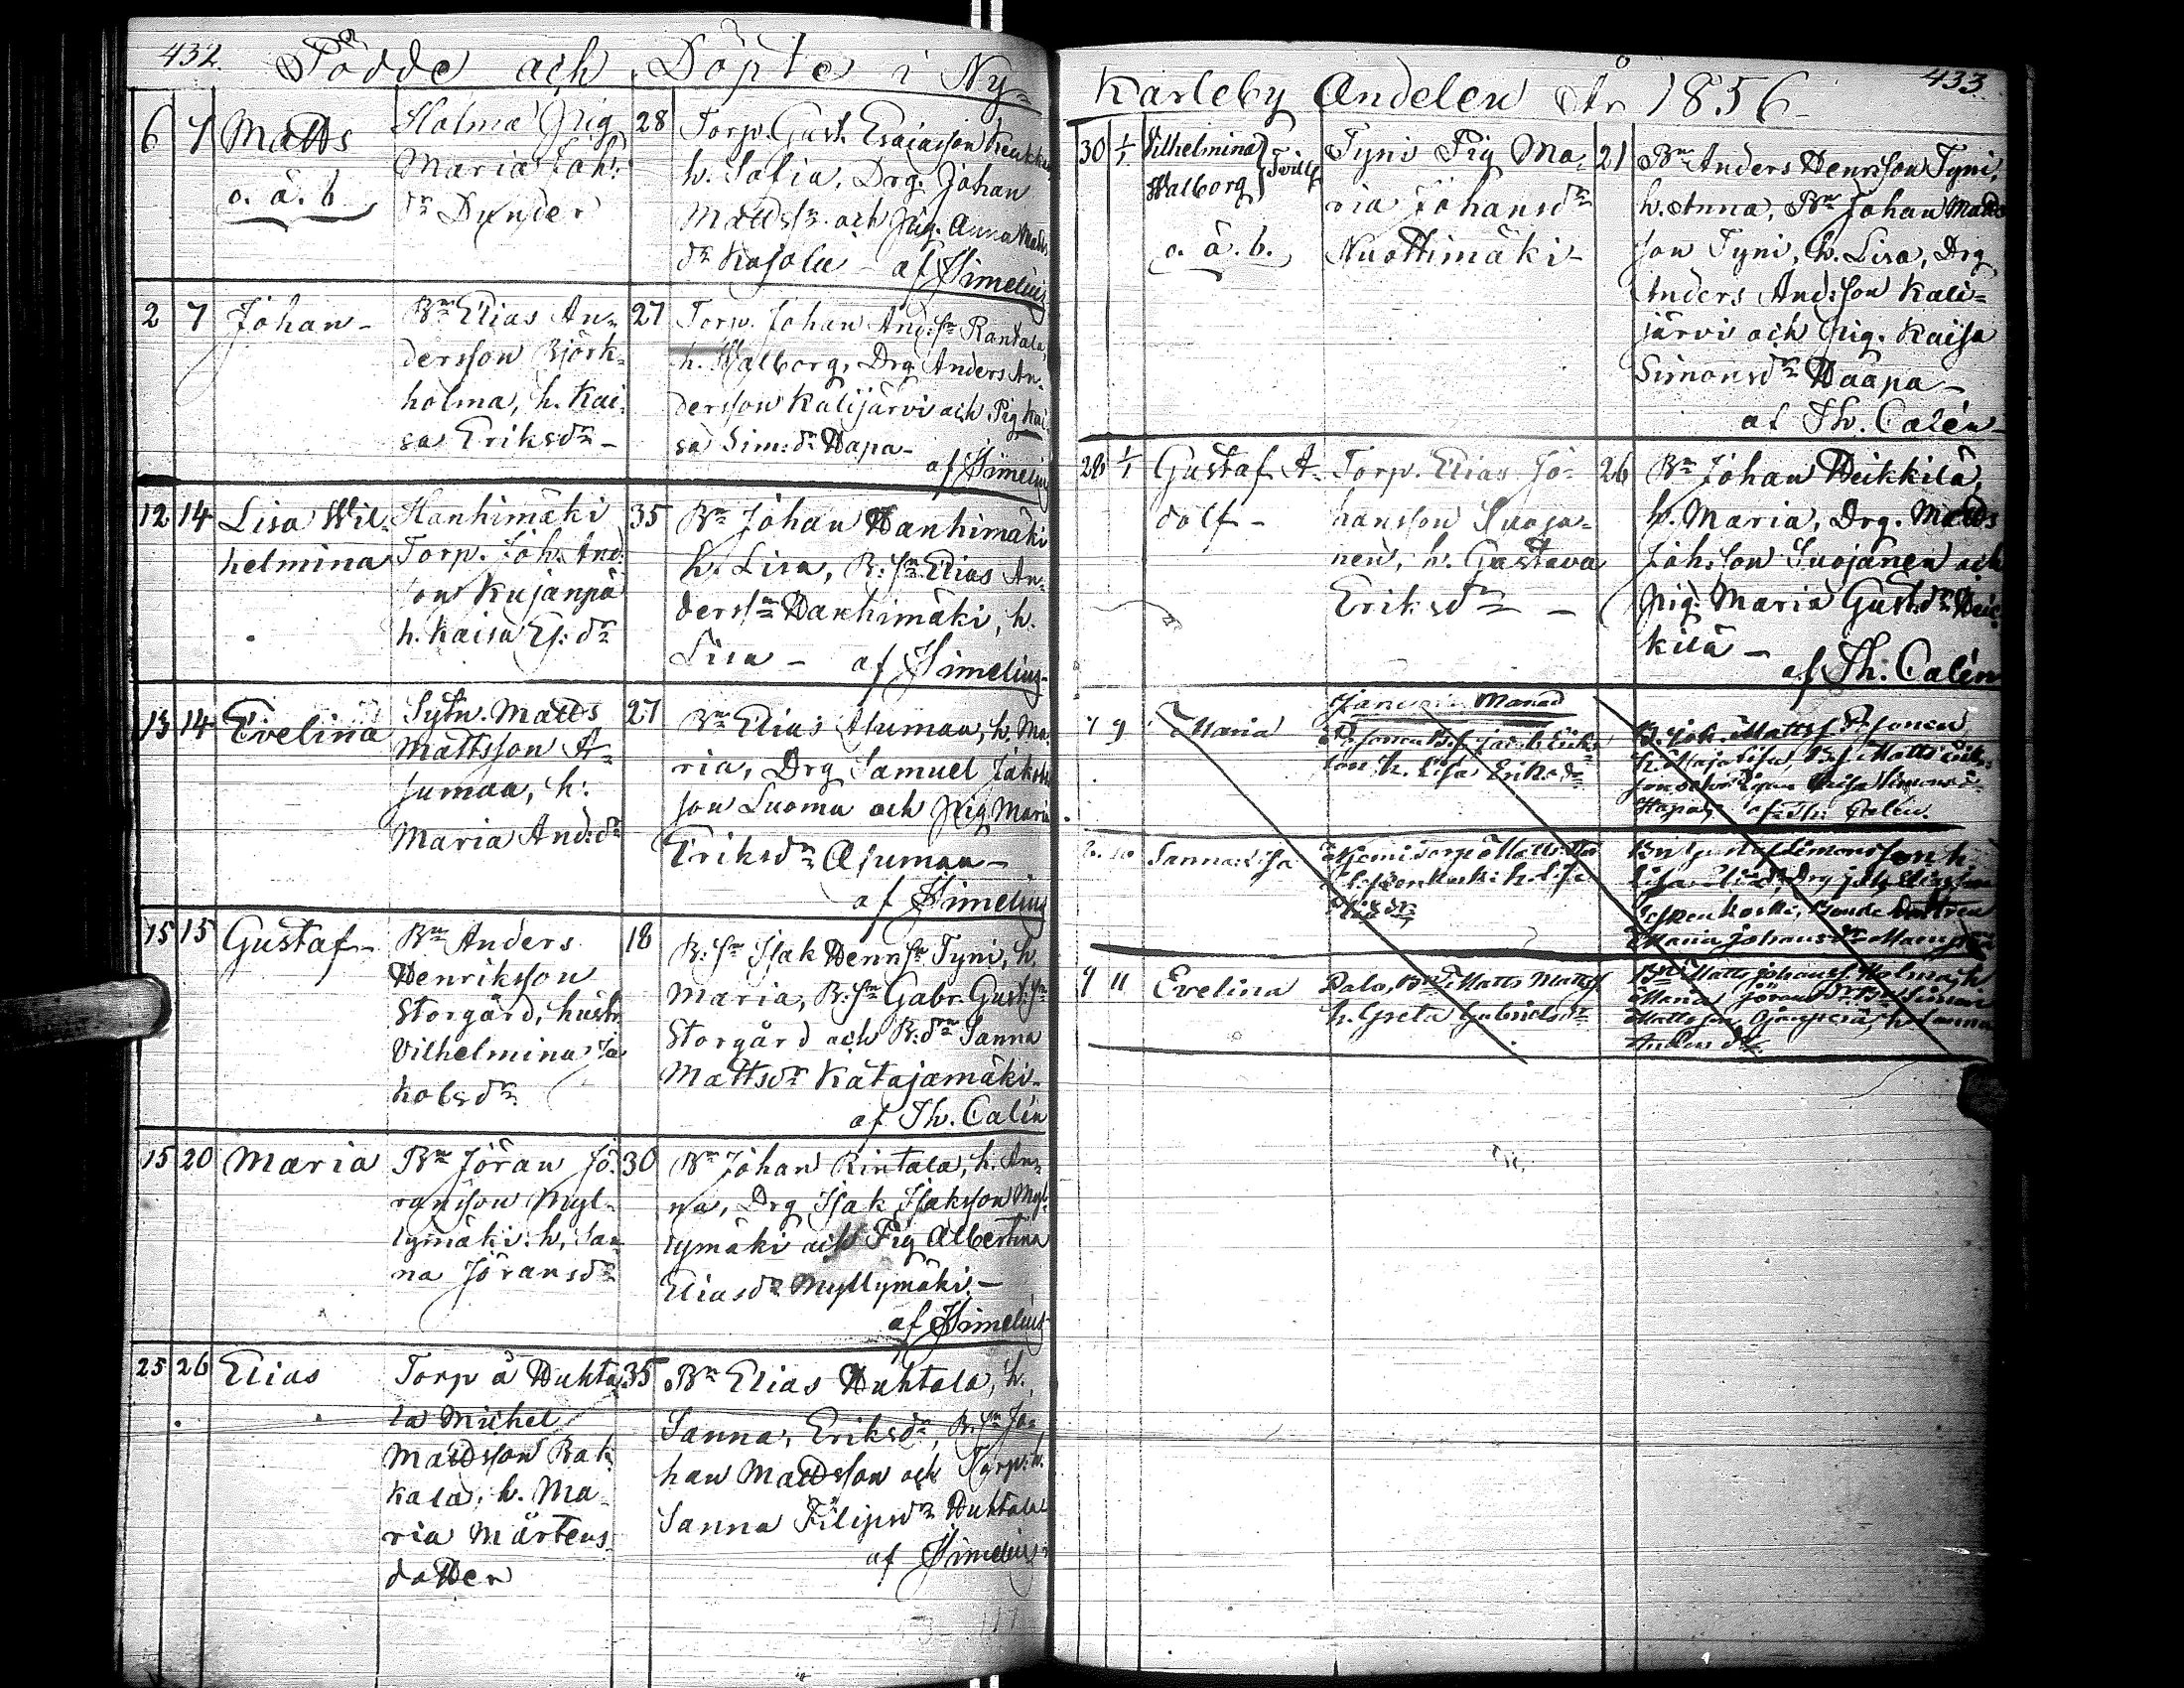 432. Födde och Döpte i Ny-
6 7 Matts
o. ä. b.
Holma Pig
Maria Joh:
dr Dunder
28
Torp. Gust. Esaiasson
h. Sofia, Drg. Johan
Mattss:n och Pig. Anna Matts
dr Kojola - af Simelius
2 7 Johan -
Bn Elias An-
dersson Björk-
holma, h. Kai-
sa Eriksdr -
27
Torp. Johan And:sn Rantala,
h. Walborg, Drg Anders An-
dersson Kalijärvi och Pig Kai-
sa Sim:dr Hapa -
af Simelius
12 14 Lisa Wil-
helmina
Hanhimäki
Torp. Joh. And:
son Kujanpä
h. Kaisa Es:dr
35
Bn Johan Hanhimäki
h. Lisa, B:sn Elias An-
derssn Hanhimäki, h.
Lisa - af Simelius
13 14 Evelina
Sytn. Matts
Mattsson A-
jumaa, h:
Maria And:dr
27
Bn Elias Ajumaa, h. Ma-
ria, Drg Samuel Jakobs
son Luoma och Pig Maria
Eriksdr Ajumaa -
af Simelius
15 15 Gustaf -
Bn Anders
Henriksson
Storgård, hustr.
Vilhelmina Ja
kobsdr
18
B:sn Isak Hennsn Tyni, h.
Maria, B:sn Gabr. Gust:sn
Storgård och B:dr Sanna
Mattsdr Katajamäki -
af Th. Calén
15 20 Maria
Bn Jöran Jö-
ransson Myl-
lymäki: h. San
na Jöransdr
30
Bn Johan Rintala, h. An-
na, Drg Isak Isaksson Myl-
lymäki och Pig Albertina
Eliasdr Myllymäki. -
af Simelius
25 26 Elias
Torp å Huhta
la Michel
Mattsson Bak
kala, h. Ma-
ria Mårtens
dotter
35
Bn Elias Huhtala, h.
Sanna, Eriksdr, B:sn Jo-
han Mattsson och Torp. h.
Sanna Filipsdr Huhtala
af Simelius
Karleby Andelen År 1856 433
30 1/1 Vilhelmina
Walborg Tvill
o. ä. b.
Tyni Pig Ma-
ria Johansdr
Nuottimäki -
21
Bn Anders Henrsson Tyni,
h. Anna, Bn Johan Matts
son Tyni, h. Lisa, Drg
Anders And:son Kali-
järvi och Pig. Kaisa
Simonsdr Haapa -
af Th. Calén
28 1/1 Gustaf A-
dolf -
Torp. Elias Jo-
hansson Suoja-
nen, h. Gustava
Eriksdr -
26
Bn Johan Heikkilä,
h. Maria, Drg. Matts
Joh:son Suojanen och
Pig. Maria Gust:dr Heik
kilä -
af Th: Calén
Januari Månad
7 9 Maria
h. Lisa Eriksdr
B. Joh. Mattss
Hapa, af Th: Calén.
10 Sanna Lisa
Maria Johansdr
9 11 Evelina
Palo, Bn Matts Mattss
h. Greta Gabrielsdr
Bn Matts Johanss. Holma, h.
Maria Jöransdr, Bn Simon
Mattsson h Sanna
Andersdr.